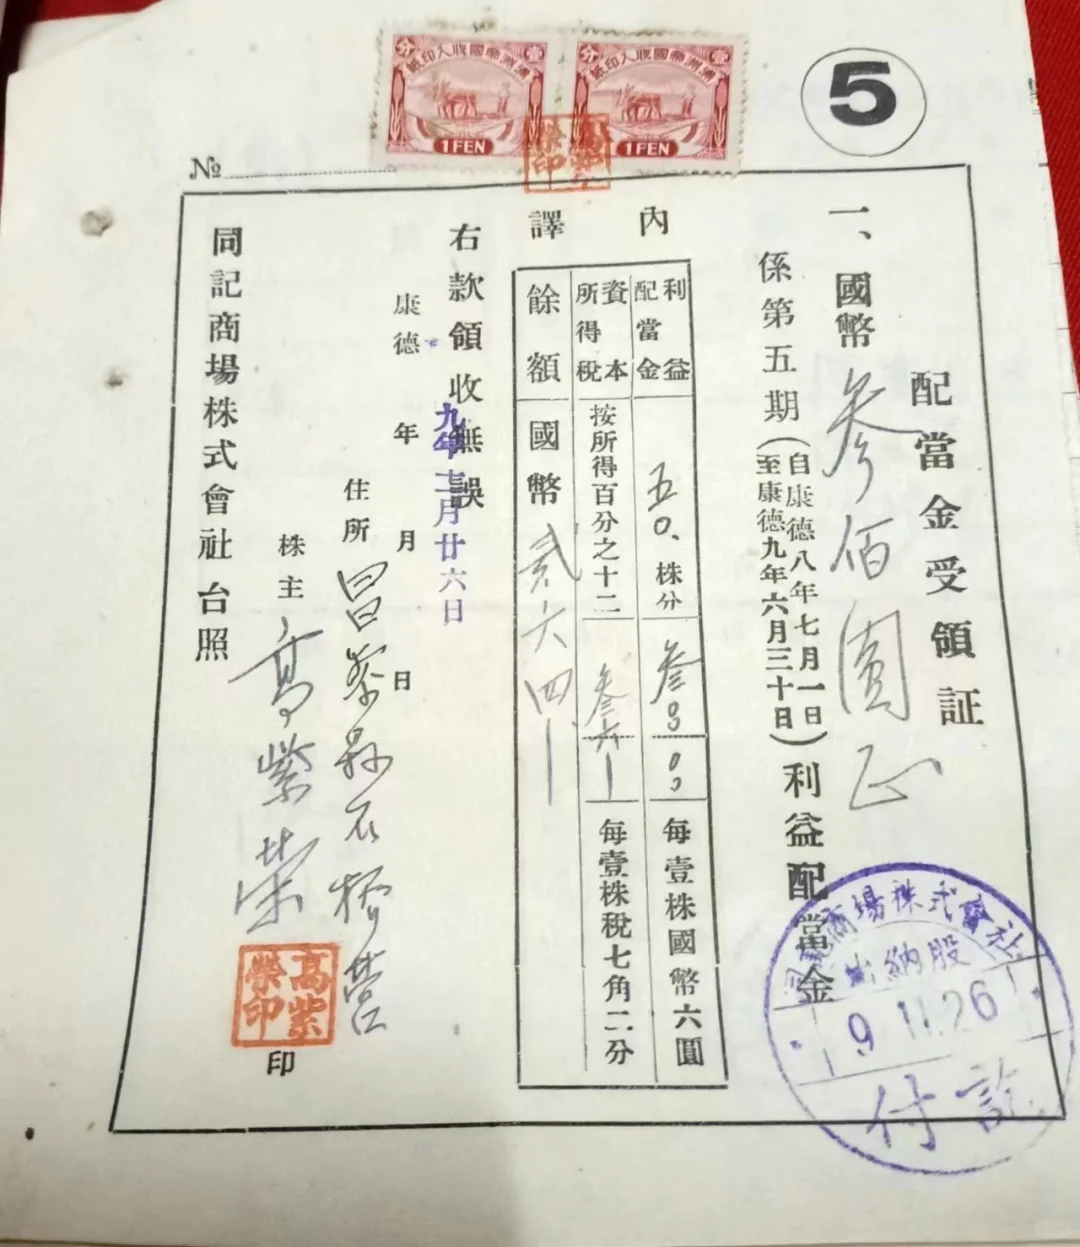 5
壹 滿洲帝國收入印紙 分
1FEN
壹 滿洲帝國收入印紙 分
1FEN
高紫榮印
№
配當金受領証
一、國幣叁佰圓正
係第五期（自康德八年七月一日至康德九年六月三十日）利益配當金
內譯
利益配當金 五〇、株分 叁〇〇 〇〇 每壹株國幣六圓
資本所得稅 按所得百分之十二 叁六 每壹株稅七角二分
餘額 國幣 貳六四
右款領收無誤
康德 年 月 日
九年十一月廿六日
住所 昌黎縣石橋營
株主 高紫榮
高紫榮印
印
同記商場株式會社台照
同記商場株式會社
出納股
9.11.26
付訖